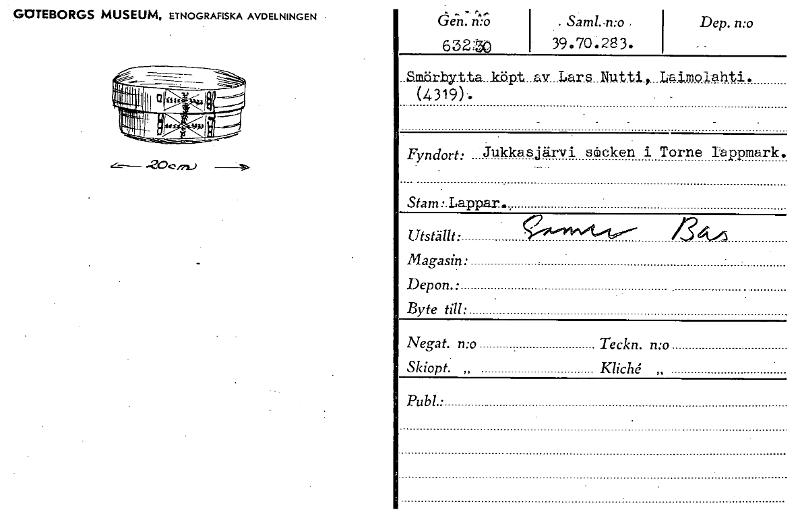 GÖTEBORGS MUSEUM, ETNOGRAFISKA AVDELNINGEN
20cm
Gen. n:o Saml. n:o Dep. n:o
39.70.283.
Smörbytta köpt av Lars Nutti, Laimolahti.
(4319).
Fyndort: Jukkasjärvi socken i Torne lappmark.
Stam: Lappar.
Utställt: Samer Bas
Magasin:
Depon.:
Byte till:
Negat. n:o Teckn. n:o
Skiopt. „ Kliché „
Publ.: